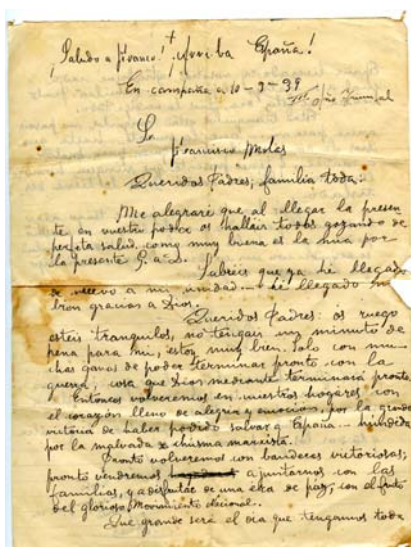 ¡Saludo a Franco! † ¡Arriba España!
En campaña a 10-3-39
3er Año Triunfal
Sr
Francisco Molas
Queridos Padres, familia toda:
Me alegraré que al llegar la presen-
te en vuestro poder os hallais todos gozando de
perfecta salud, como muy buena es la mia por
la presente G. a D.
Sabreis que ya hé llegado
de nuevo a mi unidad... hé llegado
bien gracias a Dios.
Queridos Padres: os ruego
esteis tranquilos, no tengais un minuto de
pena para mi, estoy muy bien. Solo con mu-
chas ganas de poder terminar pronto con la
guerra, cosa que Dios mediante terminará pronto.
Entonces volveremos en nuestros hogares con
el corazón lleno de alegria y emoción, por la grande
victoria de haber podido salvar a España... hundida
por la malvada chusma marxista.
Pronto volveremos con banderas victoriosas;
pronto vendremos a juntarnos con las
familias, y a disfrutar de una era de paz, con el fruto
del glorioso Movimiento Nacional.
Que grande será el dia que tengamos toda